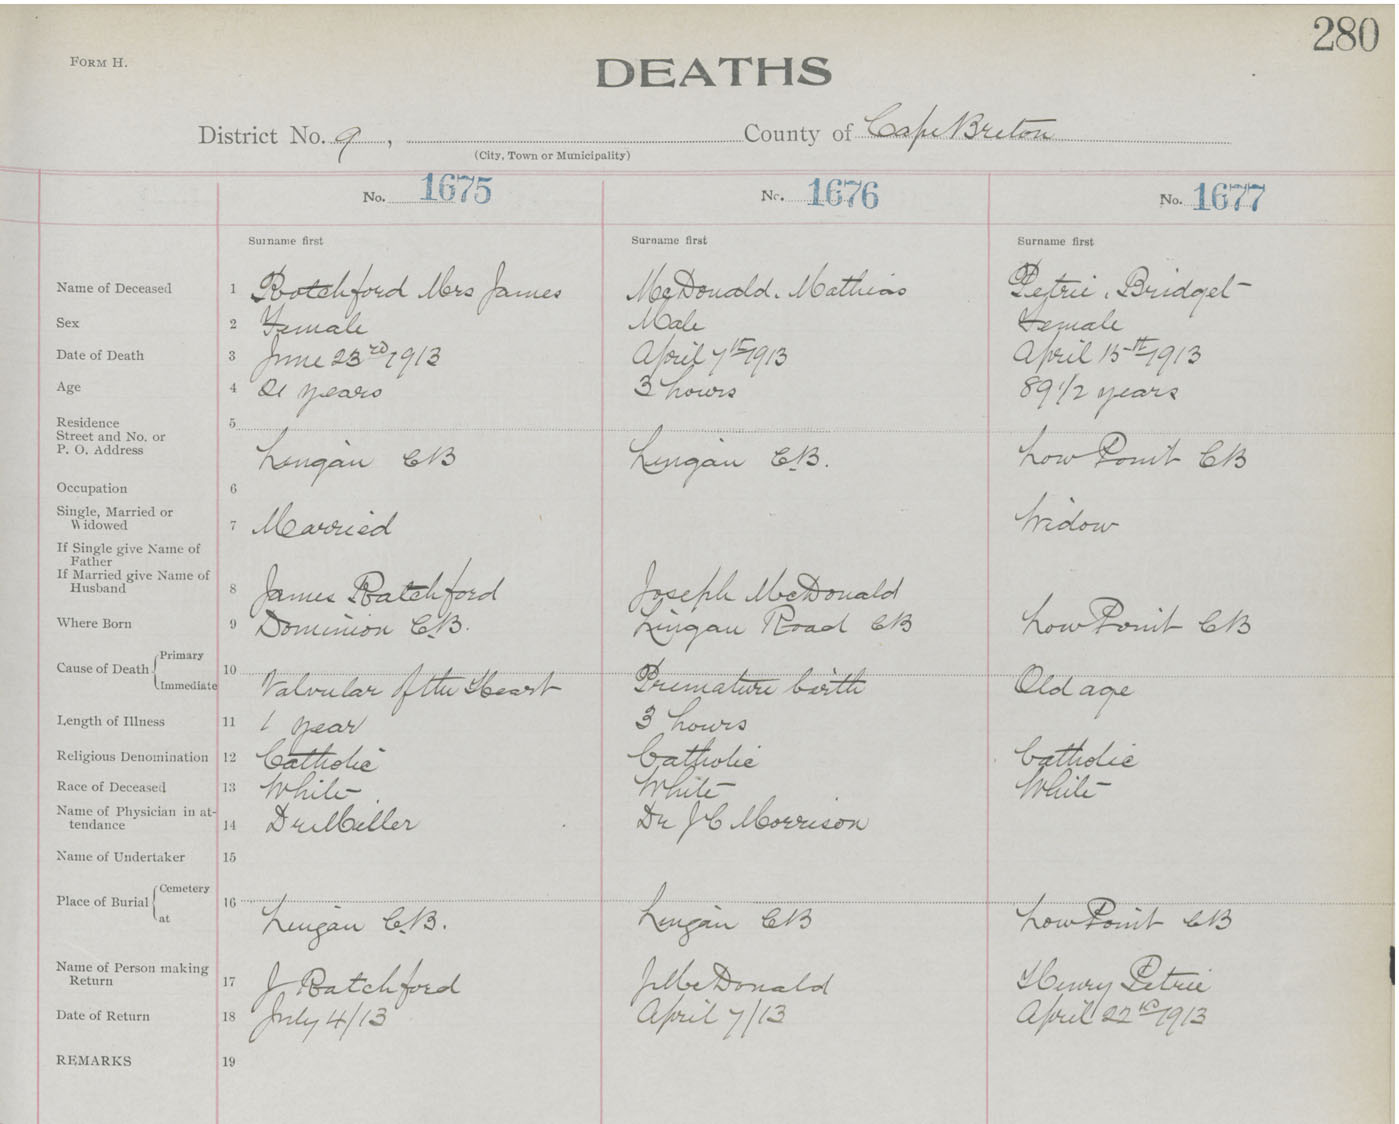 280
FORM H.
DEATHS
District No. 9, County of Cape Breton
(City, Town or Municipality)
No. 1675 No. 1676 No. 1677
Surname first Surname first Surname first
Name of Deceased 1 Ratchford Mrs James McDonald, Mathias Petrie, Bridget
Sex 2 Female Male Female
Date of Death 3 June 23rd 1913 April 7th 1913 April 15th 1913
Age 4 21 years 3 hours 89 1/2 years
Residence 5
Street and No. or
P. O. Address Lingan CB Lingan C.B. Low Point CB
Occupation 6
Single, Married or
Widowed 7 Married Widow
If Single give Name of
Father
If Married give Name of
Husband 8 James Ratchford Joseph McDonald
Where Born 9 Dominion C.B. Lingan Road CB Low Point CB
Cause of Death Primary 10
Immediate Valvular of the Heart Premature birth Old age
Length of Illness 11 1 year 3 hours
Religious Denomination 12 Catholic Catholic Catholic
Race of Deceased 13 White White White
Name of Physician in at-
tendance 14 Dr Miller Dr J C Morrison
Name of Undertaker 15
Place of Burial Cemetery 16
at Lingan C.B. Lingan CB Low Point CB
Name of Person making
Return 17 J Ratchford J McDonald Henry Petrie
Date of Return 18 July 4/13 April 7/13 April 22nd 1913
REMARKS 19